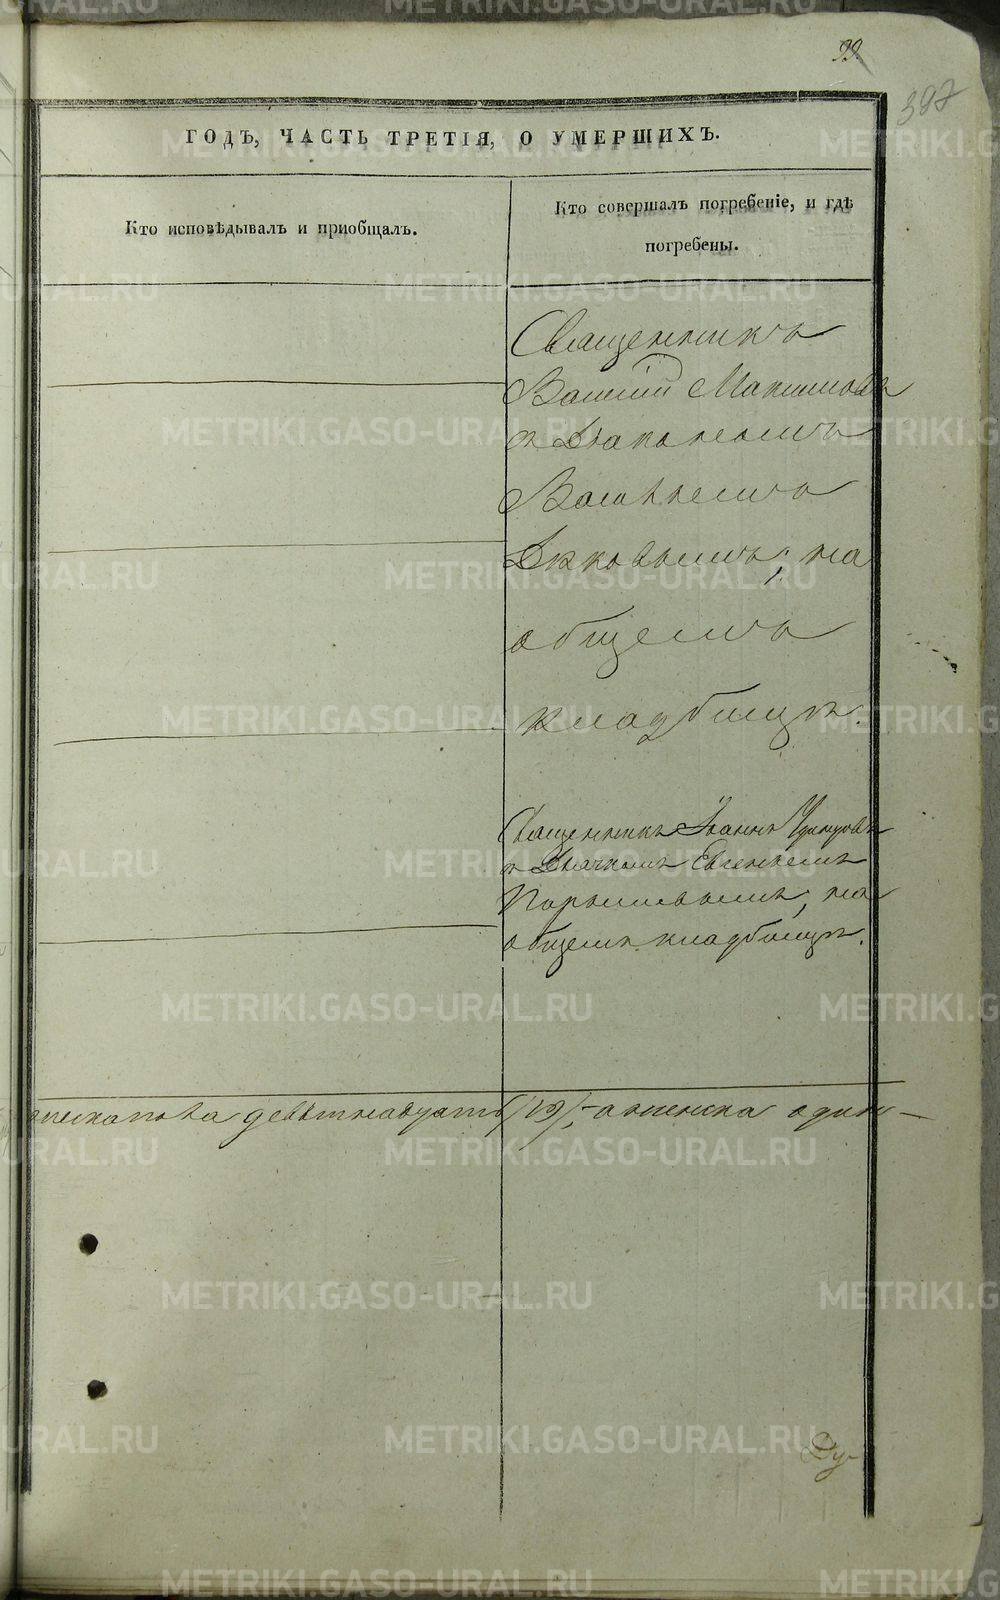 99.
397
ГОДЪ, ЧАСТЬ ТРЕТІЯ, О УМЕРШИХЪ.
Кто исповѣдывалъ и пріобщалъ.
Кто совершалъ погребеніе, и гдѣ
погребены.
Священникъ
Василій Максимовъ
съ Діакономъ
Васильемъ
на
общемъ
кладбищѣ.
Священникъ Іоаннъ
съ Дьячкомъ Евгеніемъ
на
общемъ кладбищѣ.
девятнадцать (19), а женска одинъ
Ду-
METRIKI.GASO-URAL.RU